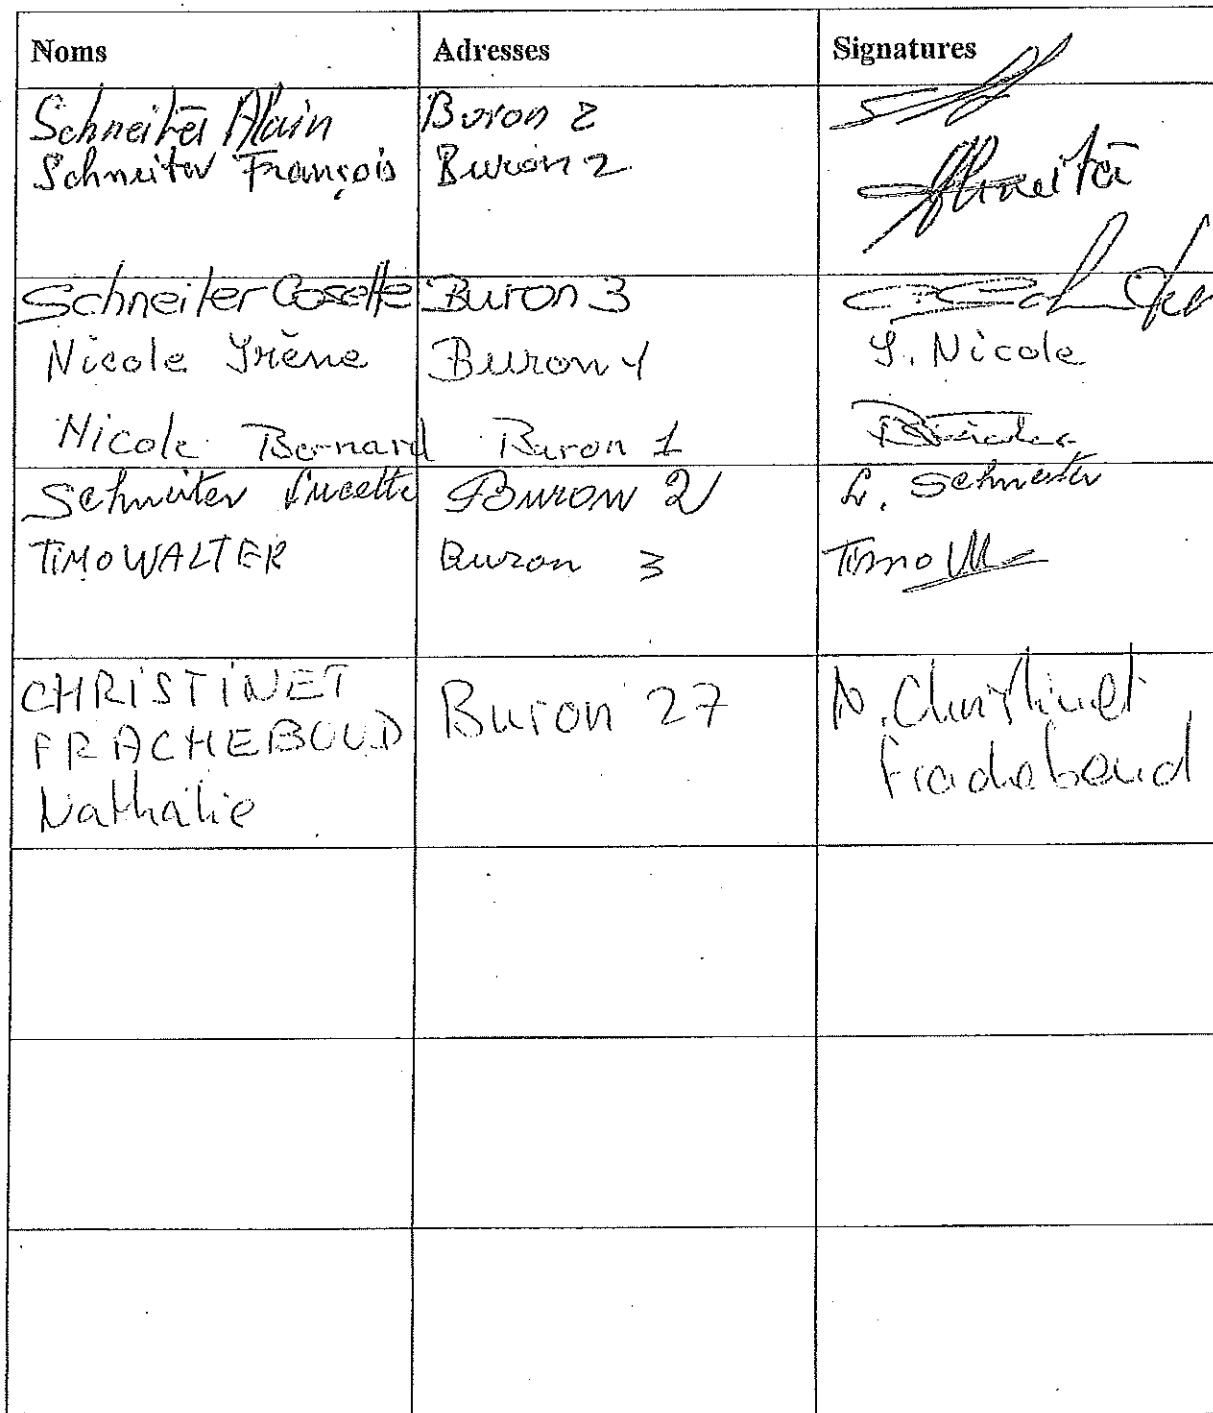 Noms Adresses Signatures
Schneiter Alain Buron 2
Schneiter François Buron 2 Schneiter
Schneiter Cosette Buron 3
Nicole Irène Buron 1 I. Nicole
Nicole Bernard Buron 1
Schneiter Lucette Buron 2 L. Schneiter
TIMO WALTER Buron 3 Timo
CHRISTINET Buron 27 N. Christinet
FRACHEBOUD Fracheboud
Nathalie